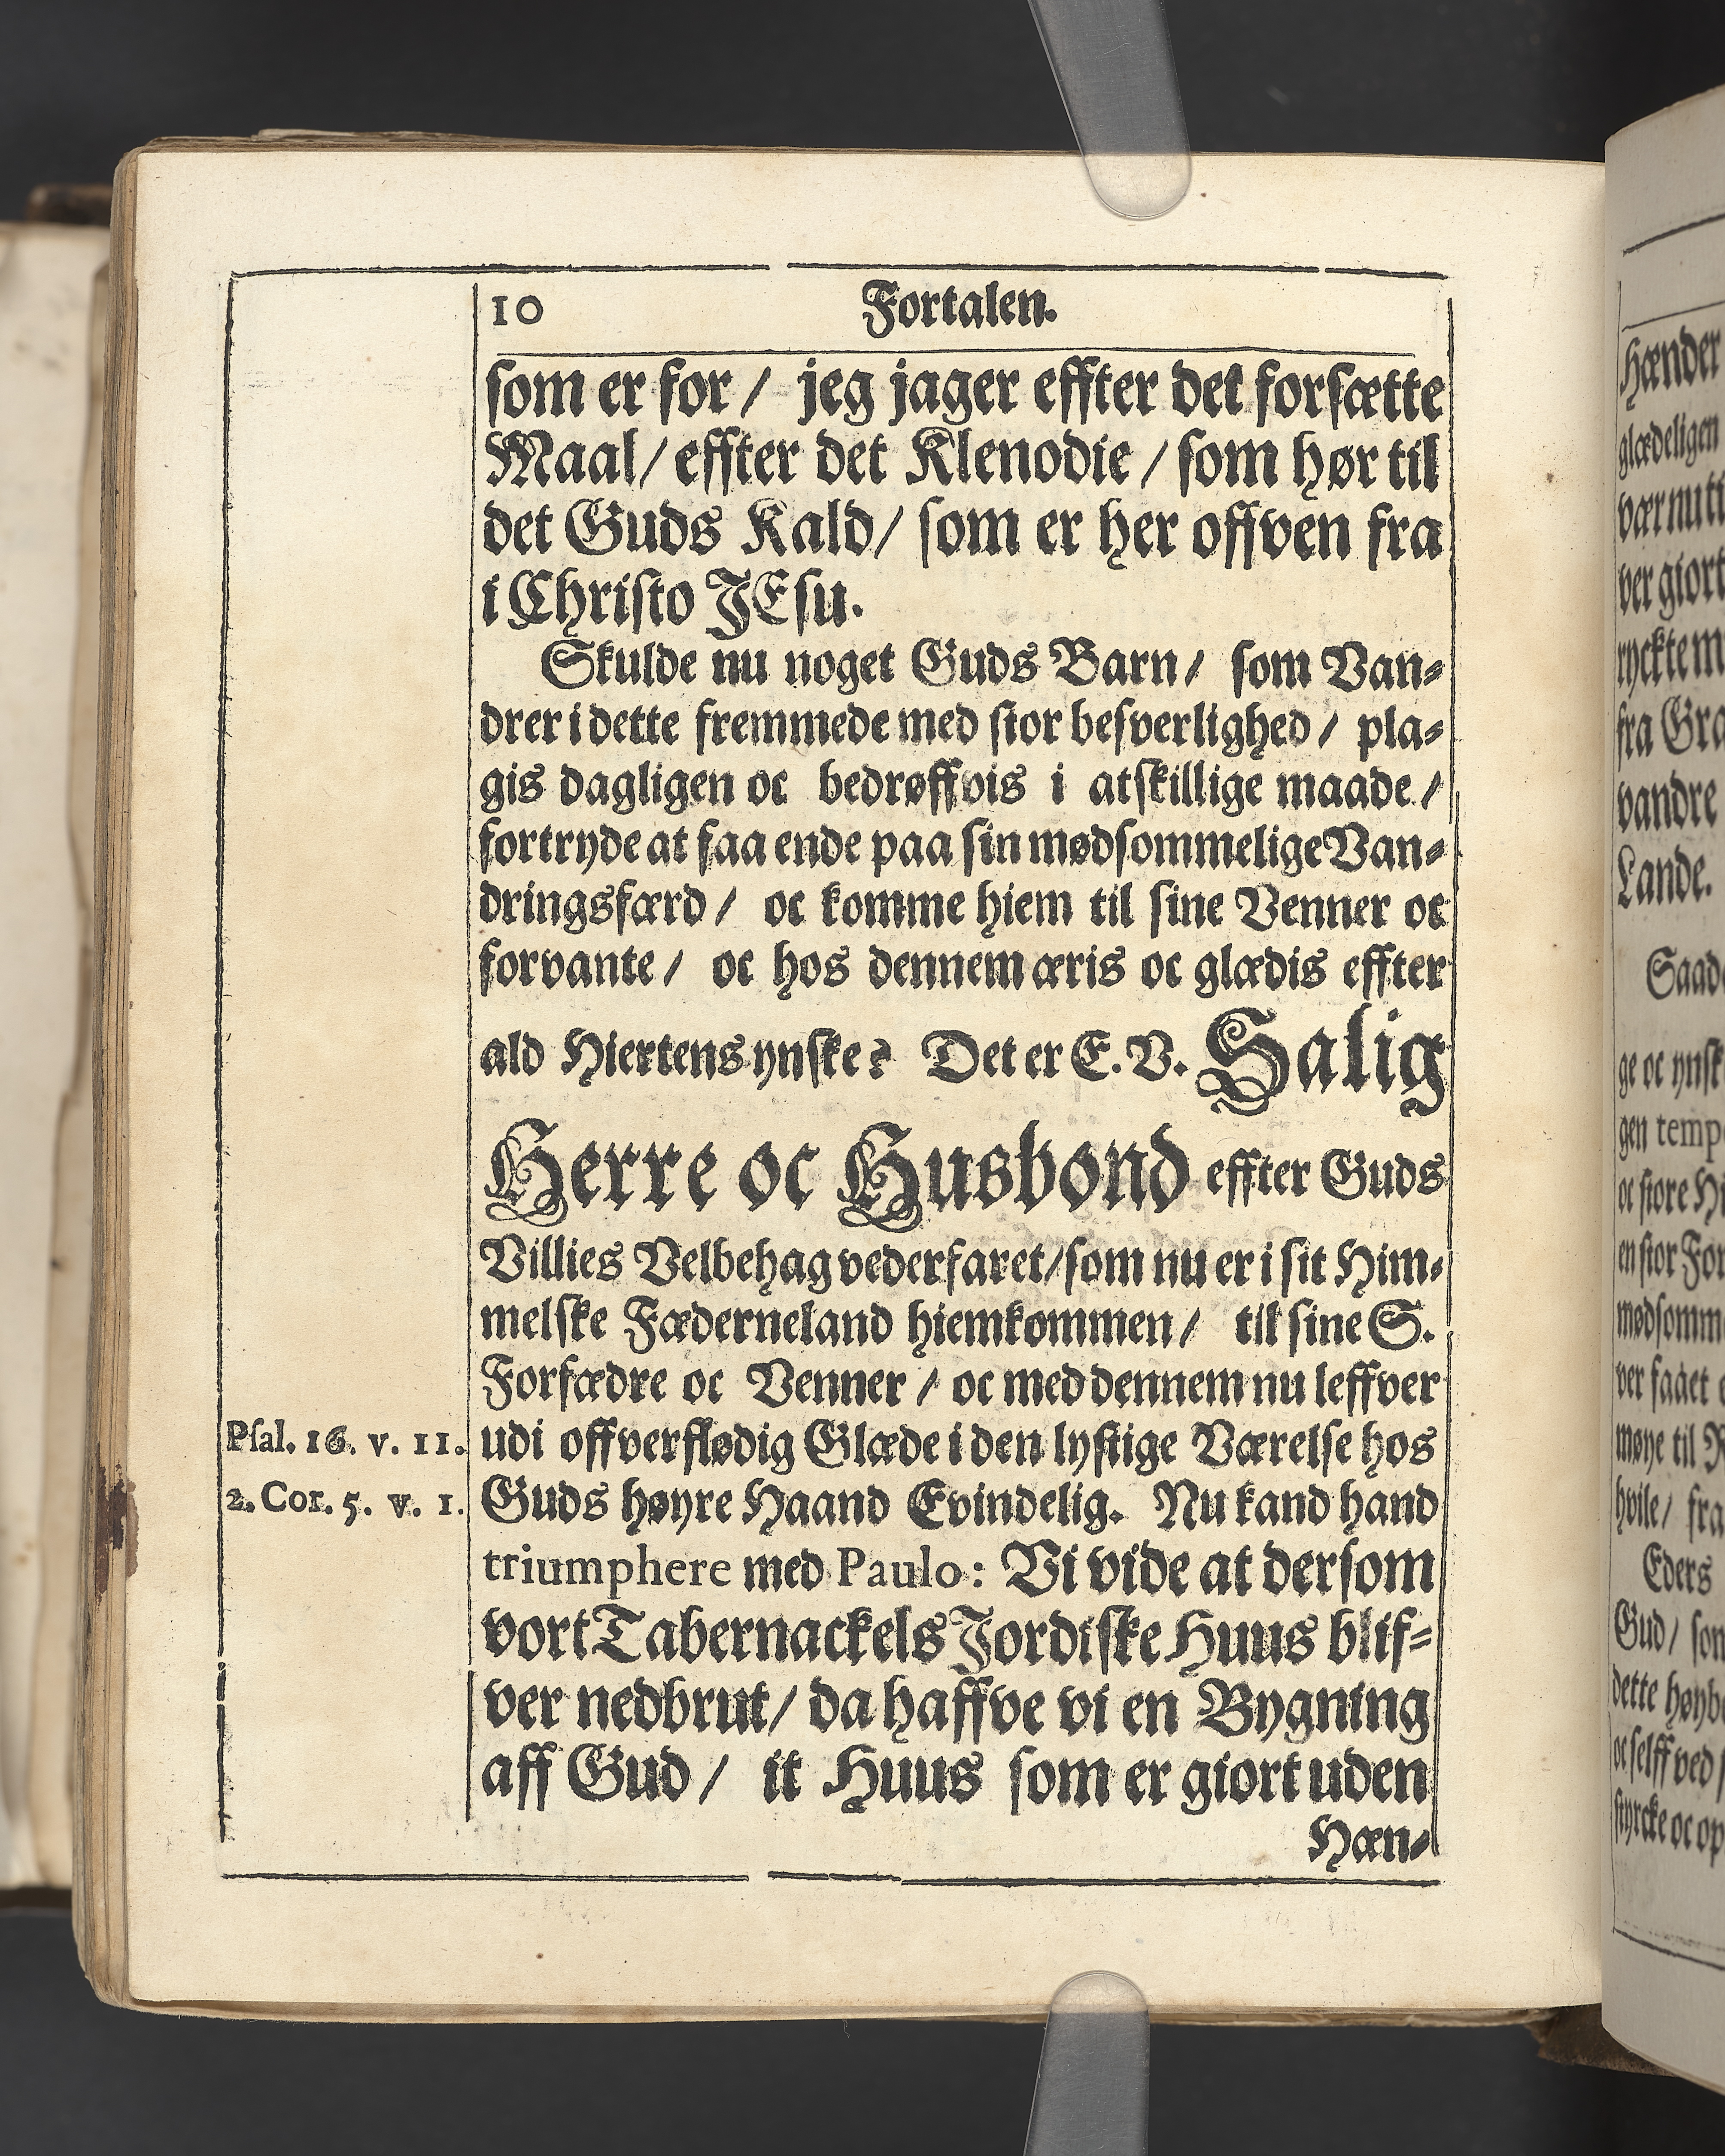 10 Fortalen.
som er for / jeg jager effter det forsætte
Maal / effter det Klenodie / som hør til
det Guds Kald / som er her offven fra
i Christo JEsu.
Skulde nu noget Guds Barn / som Van-
drer i dette fremmede med stor besverlighed / pla-
gis dagligen oc bedrøffvis i atskillige maade /
fortryde at faa ende paa sin mødsommelige Van-
dringsfærd / oc komme hiem til sine Venner oc
forvante / oc hos dennem æris oc glædis effter
ald Hiertens ynske? Det er E. V. Salig
Herre oc Husbond effter Guds
Villies Velbehag vederfaret / som nu er i sit Him-
melske Fæderneland hiemkommen / til sine S.
Forfædre oc Venner / oc med dennem nu leffver
Psal. 16. v. 11. udi offverflødig Glæde i den lystige Værelse hos
2. Cor. 5. v. 1. Guds høyre Haand Evindelig. Nu kand hand
triumphere med Paulo: Vi vide at dersom
vort Tabernackels Jordiske Huus blif-
ver nedbrut / da haffve vi en Bygning
aff Gud / it Huus som er giort uden
Hæn-
Hænder
glædeligen
ver giort
fra
vandre
Lande.
ge oc ynsk
oc store
en stor
ver faaet
møye til
hvile / fra
Eders
Gud /
dette
oc selff ved
styrcke oc op